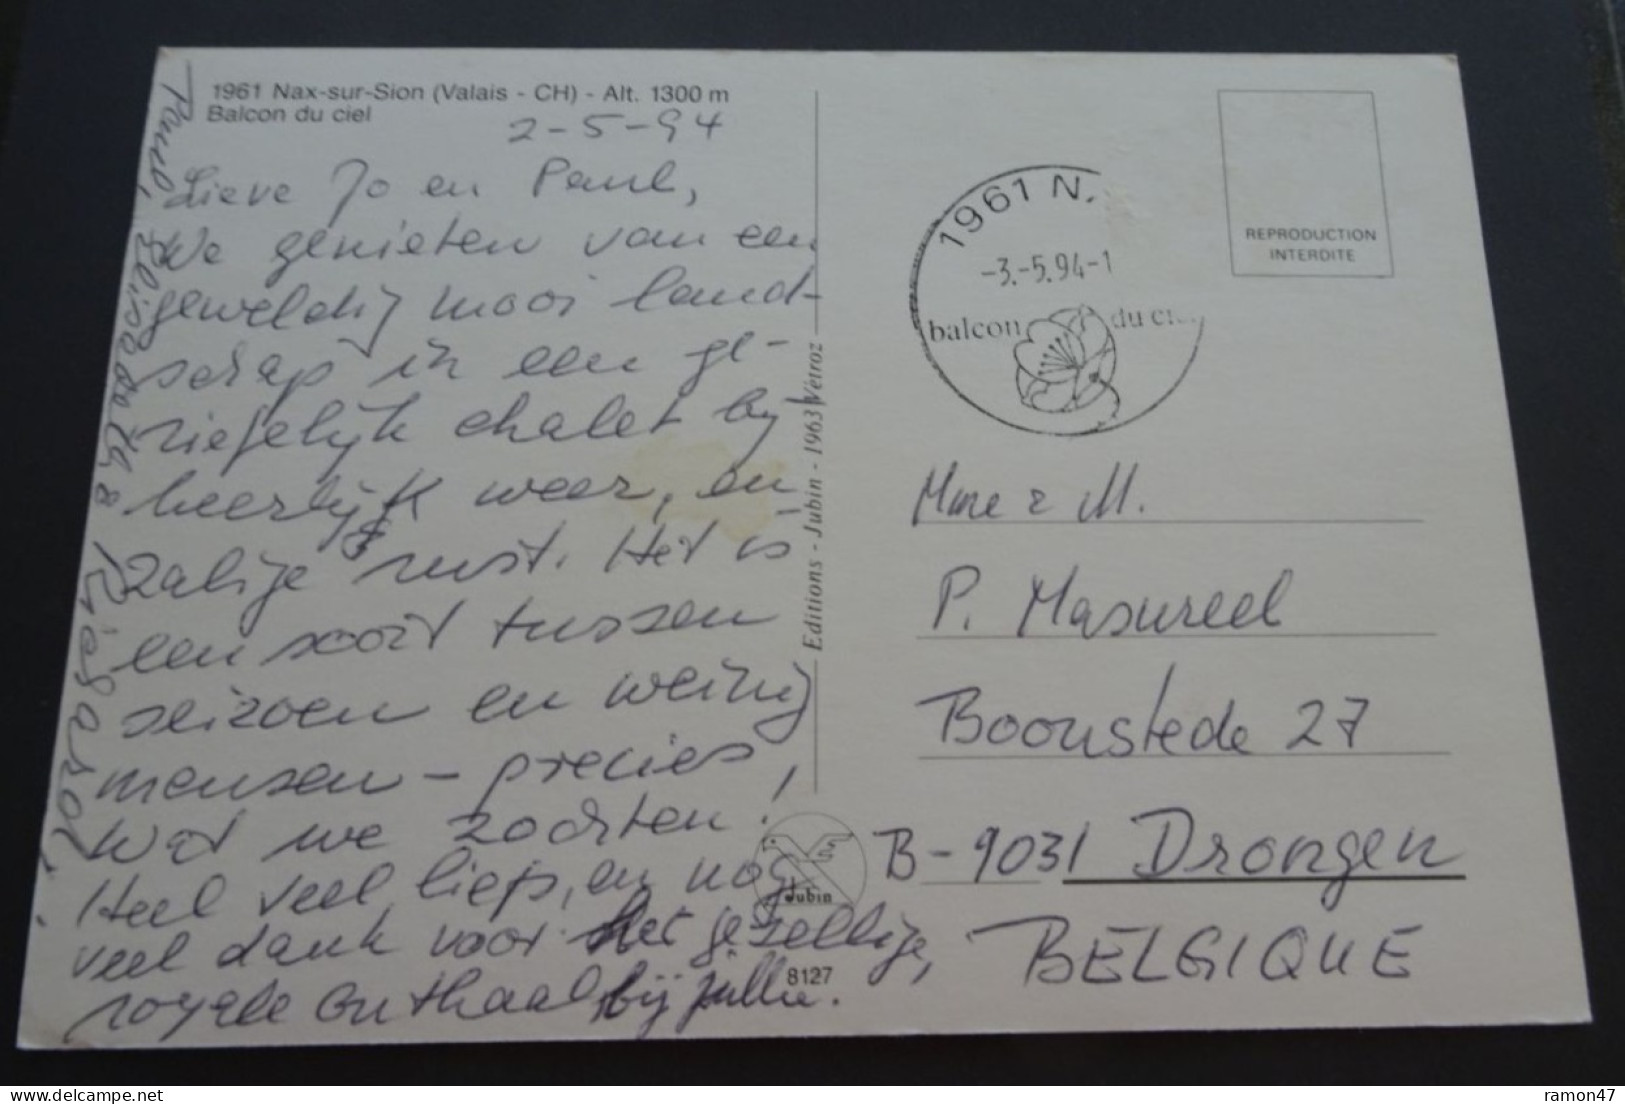 1961 Nax-sur-Sion (Valais - CH) - Alt. 1300 m
Balcon du ciel
2-5-94
Lieve Jo en Paul,
We genieten van een
geweldig mooi land-
schap in een ge-
riefelijk chalet bij
heerlijk weer, en
zalige rust. Het is
een soort tussen
seizoen en weinig
mensen - precies,
wat we zochten!
Heel veel liefs, en nog
veel dank voor het gezellige,
royale onthaal bij jullie.
Elisabeth &
Editions - Jubin - 1963 Vétroz
Jubin
8127
1961 N.
-3.-5.94-1
balcon du cie
REPRODUCTION
INTERDITE
Mme & M.
P. Masureel
Boonstede 27
B-9031 Drongen
BELGIQUE
delcampe.net
ramon47